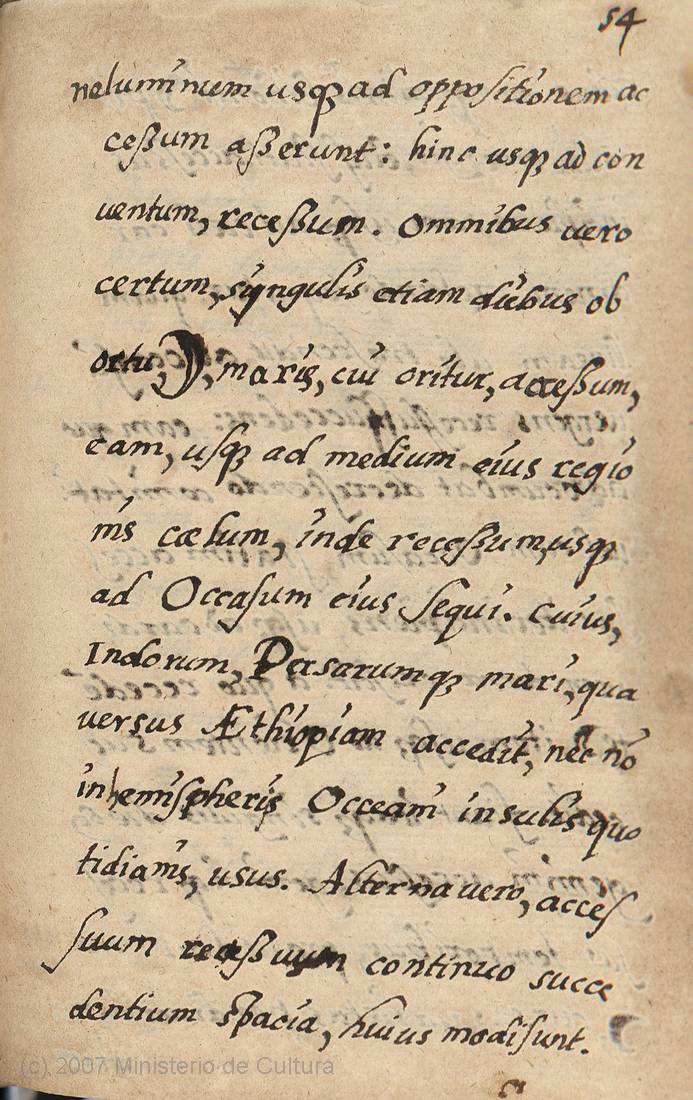 54
neluminum usq₃ ad oppositionem ac
ceßum aßerunt: hinc usq₃ ad con
uentum, receßum. Omnibus vero
certum, singulis etiam diebus ob
ortu ☽, maris, cui oritur, acceßum,
eam, usq₃ ad medium eius regio
nis cælum, inde receßum, usq₃
ad Occasum eius sequi. Cuius,
Indorum, Persarumq₃ mari, qua
versus Æthiopiam accedit, nec nō
in hemispheris Occeani insulis quo
tidianis, usus. Alterna uero, acces
suum receßuum continuo succe
dentium spacia, huius modi sunt.
(c) 2007 Ministerio de Cultura